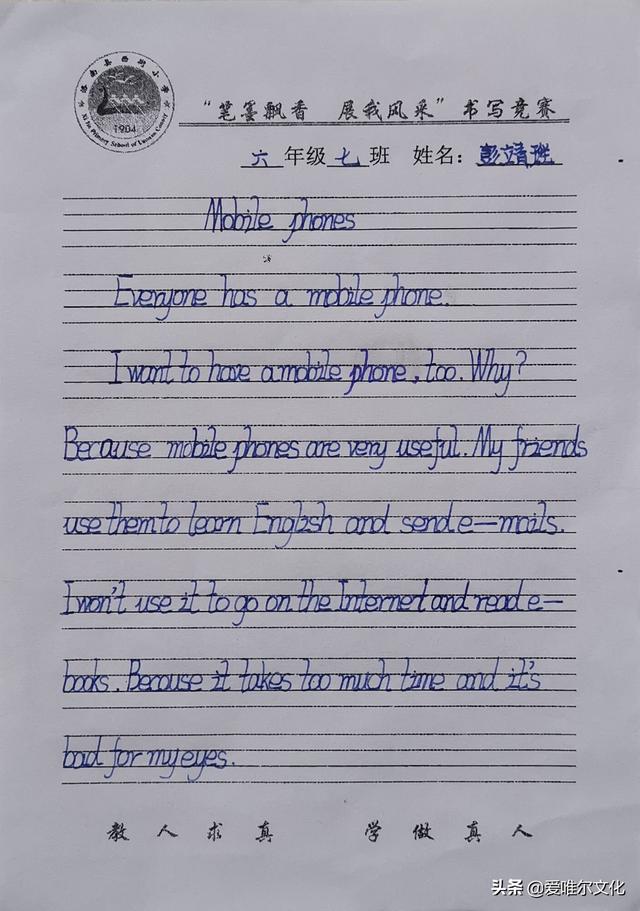 1904
Primary School of County
“笔墨飘香 展我风采”书写竞赛
六 年级 七 班 姓名：彭靖
Mobile phones
Everyone has a mobile phone.
I want to have a mobile phone, too. Why?
Because mobile phones are very useful. My friends
use them to learn English and send e—mails.
I won't use it to go on the Internet and read e—
books. Because it takes too much time and it's
bad for my eyes.
教人求真 学做真人
头条 @爱唯尔文化